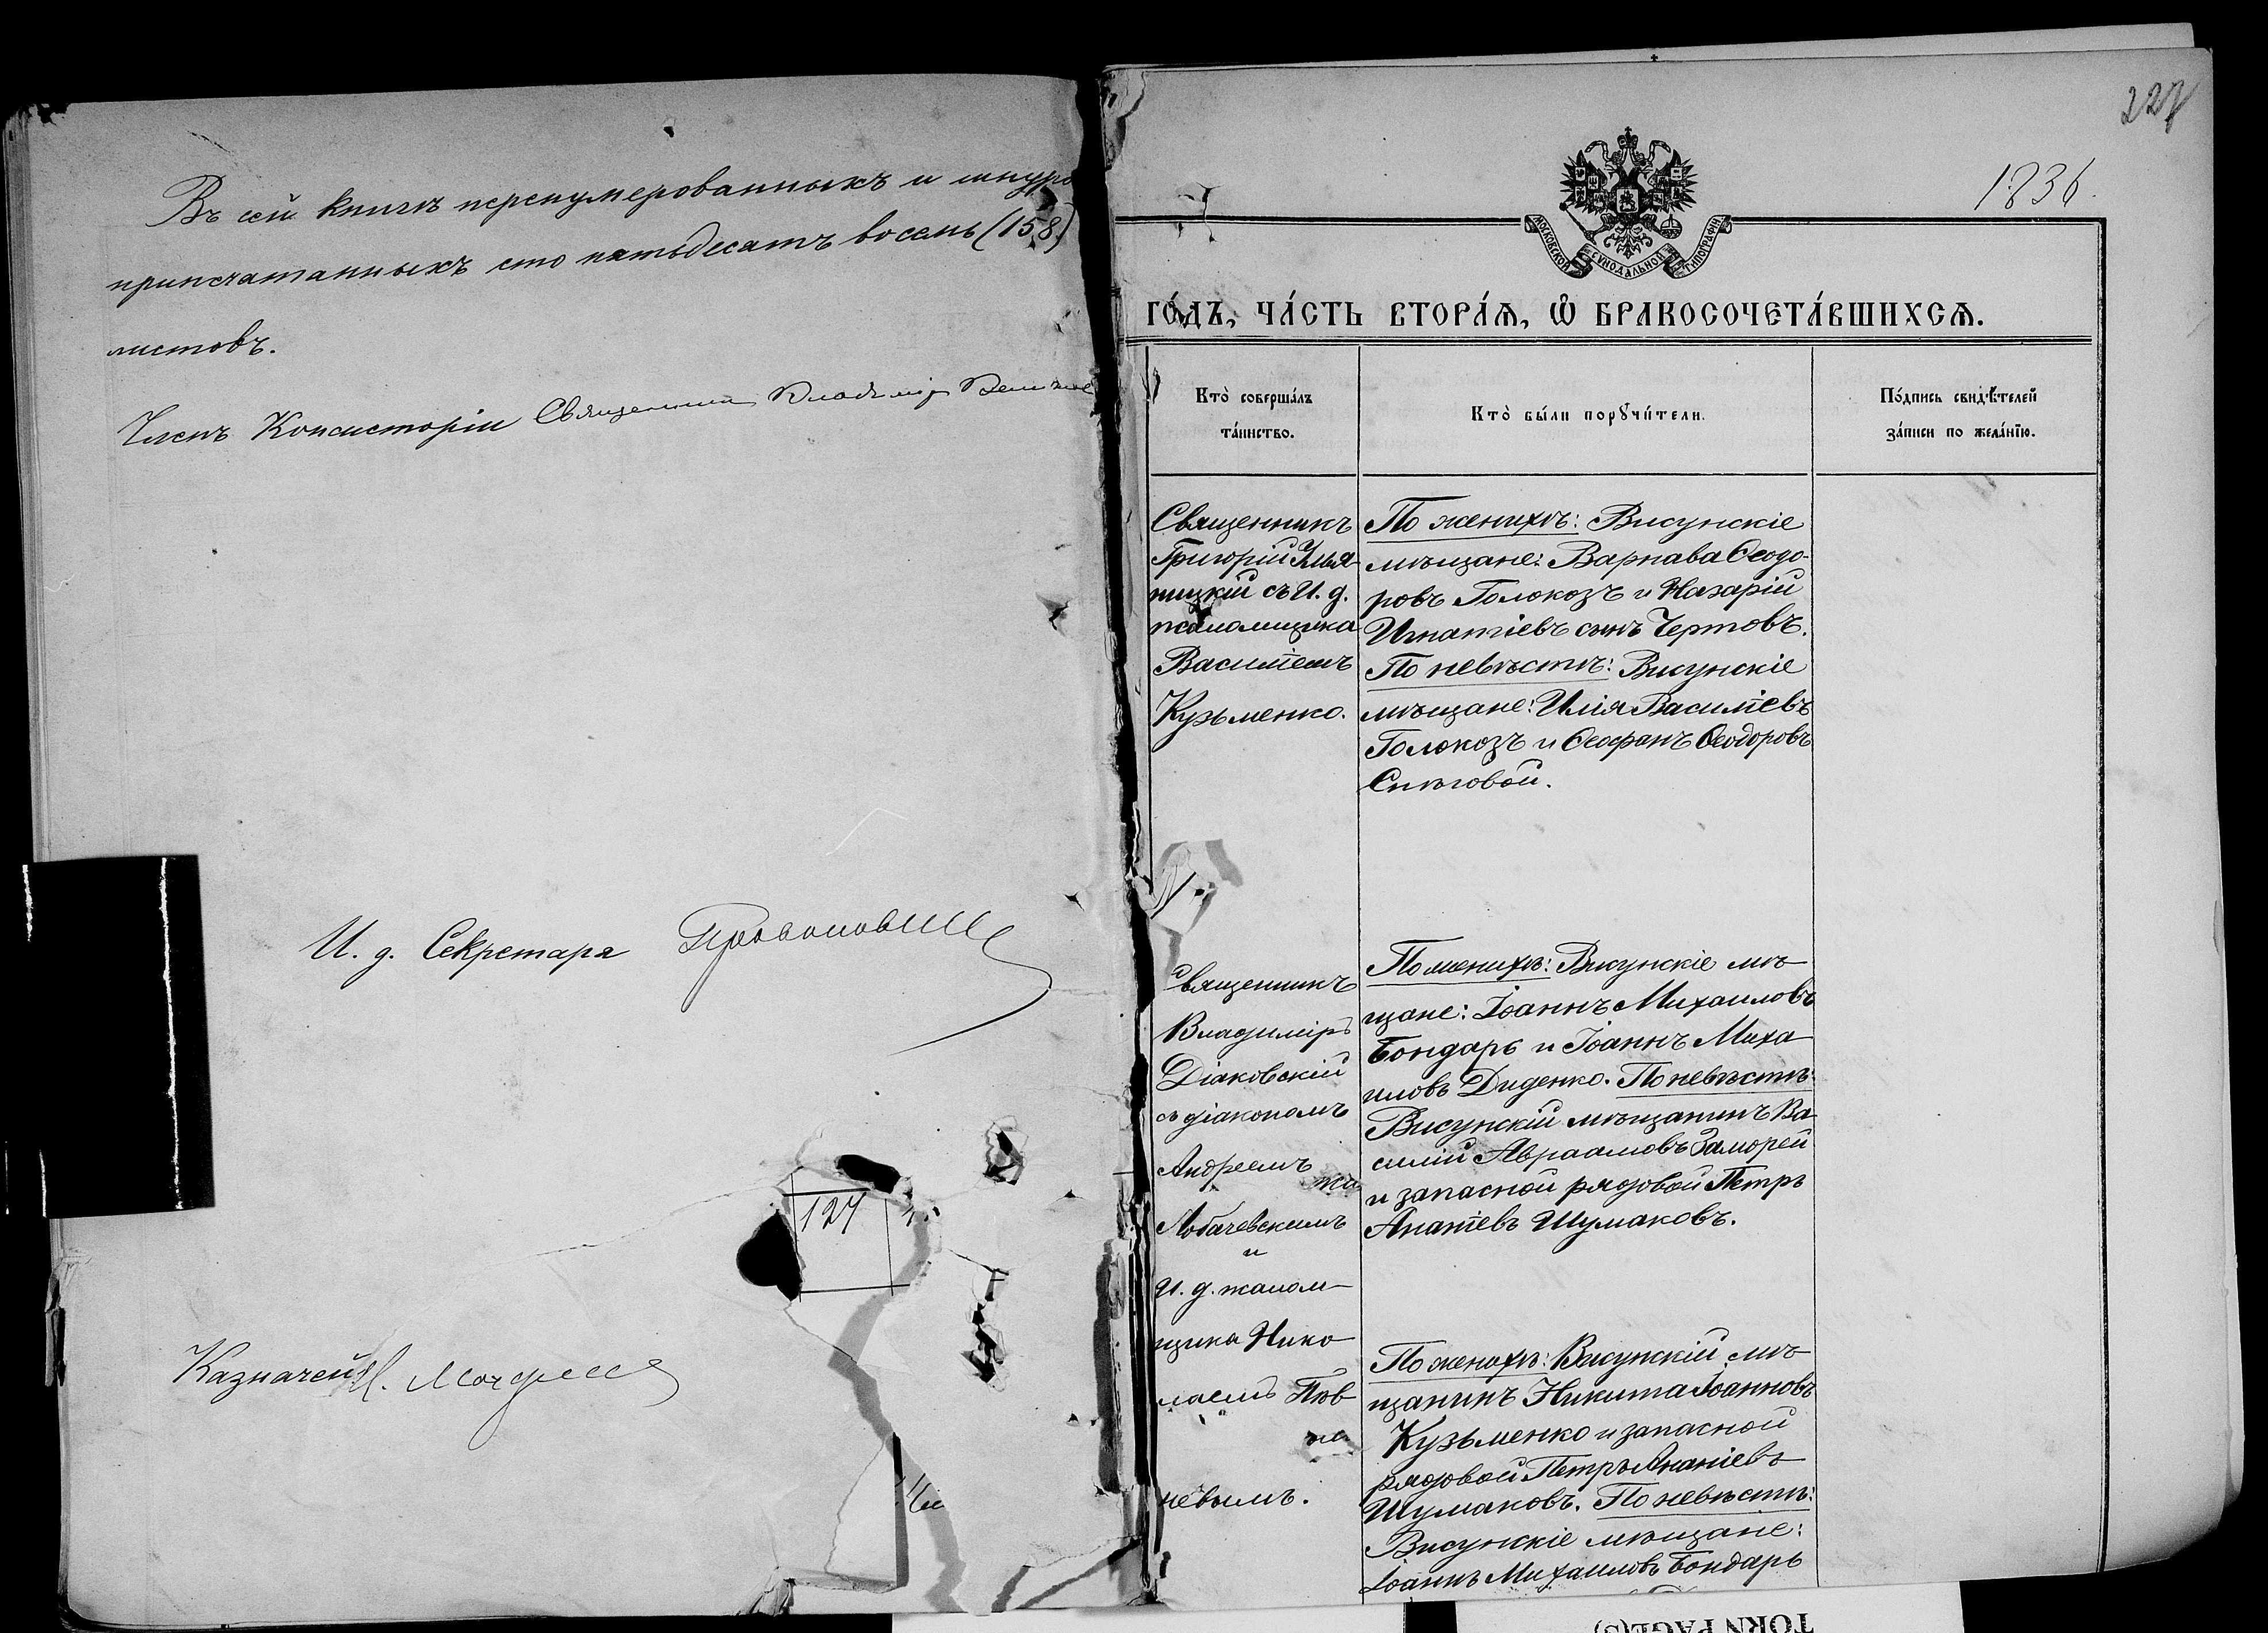 Въ сей книгѣ перенумерованныхъ и шнуро
припечатанныхъ сто пятьдесятъ восемь (158)
листовъ.
Членъ Консисторіи Священникъ Владимір
И. д. Секретаря
127
Казначей
227
1836.
МОСКОВСКОЙ СѴНОДАЛЬНОЙ ТИПОГРАФІИ
ГО́ДЪ, ЧА́СТЬ ВТОРА́Ѧ, Ѽ БРАКОСОЧЕТА́ВШИХСѦ.
Кто̀ соверша́лъ
та́инство.
Кто̀ бы́ли порꙋчи́тели.
По́дпись свидѣ́телей
за́писи по жела́нїю.
Священникъ
Григорій
ницкій съ И. д.
псаломщика
Василіемъ
Кузьменко.
По женихѣ: Висунскіе
мѣщане: Варнава Ѳеодо-
ровъ Голокозъ и Назарій
Игнатіевъ сынъ Чертовъ.
По невѣстѣ: Висунскіе
мѣщане: Илія Василіевъ
Голокозъ и Ѳеофанъ Ѳеодоровъ
Снѣговой.
Священникъ
Владиміръ
Діаковскій
съ діакономъ
Андреемъ
Лобачевскимъ
и
И. д. псалом
щика Нико
лаемъ
невымъ.
По женихѣ: Висунскіе мѣ
щане: Іоаннъ Михаиловъ
Бондарь и Іоаннъ Миха
иловъ Диденко. По невѣстѣ:
Висунскій мѣщанинъ Ва
силій Авраамовъ Заморей
и запасной рядовой Петръ
Ананіевъ Шумаковъ.
По женихѣ: Висунскій мѣ
щанинъ Никита Іоанновъ
Кузьменко и запасной
рядовой Петръ Ананіевъ
Шумаковъ. По невѣстѣ:
Висунскіе мѣщане:
Іоаннъ Михаиловъ Бондарь
TORN PAGE(S)